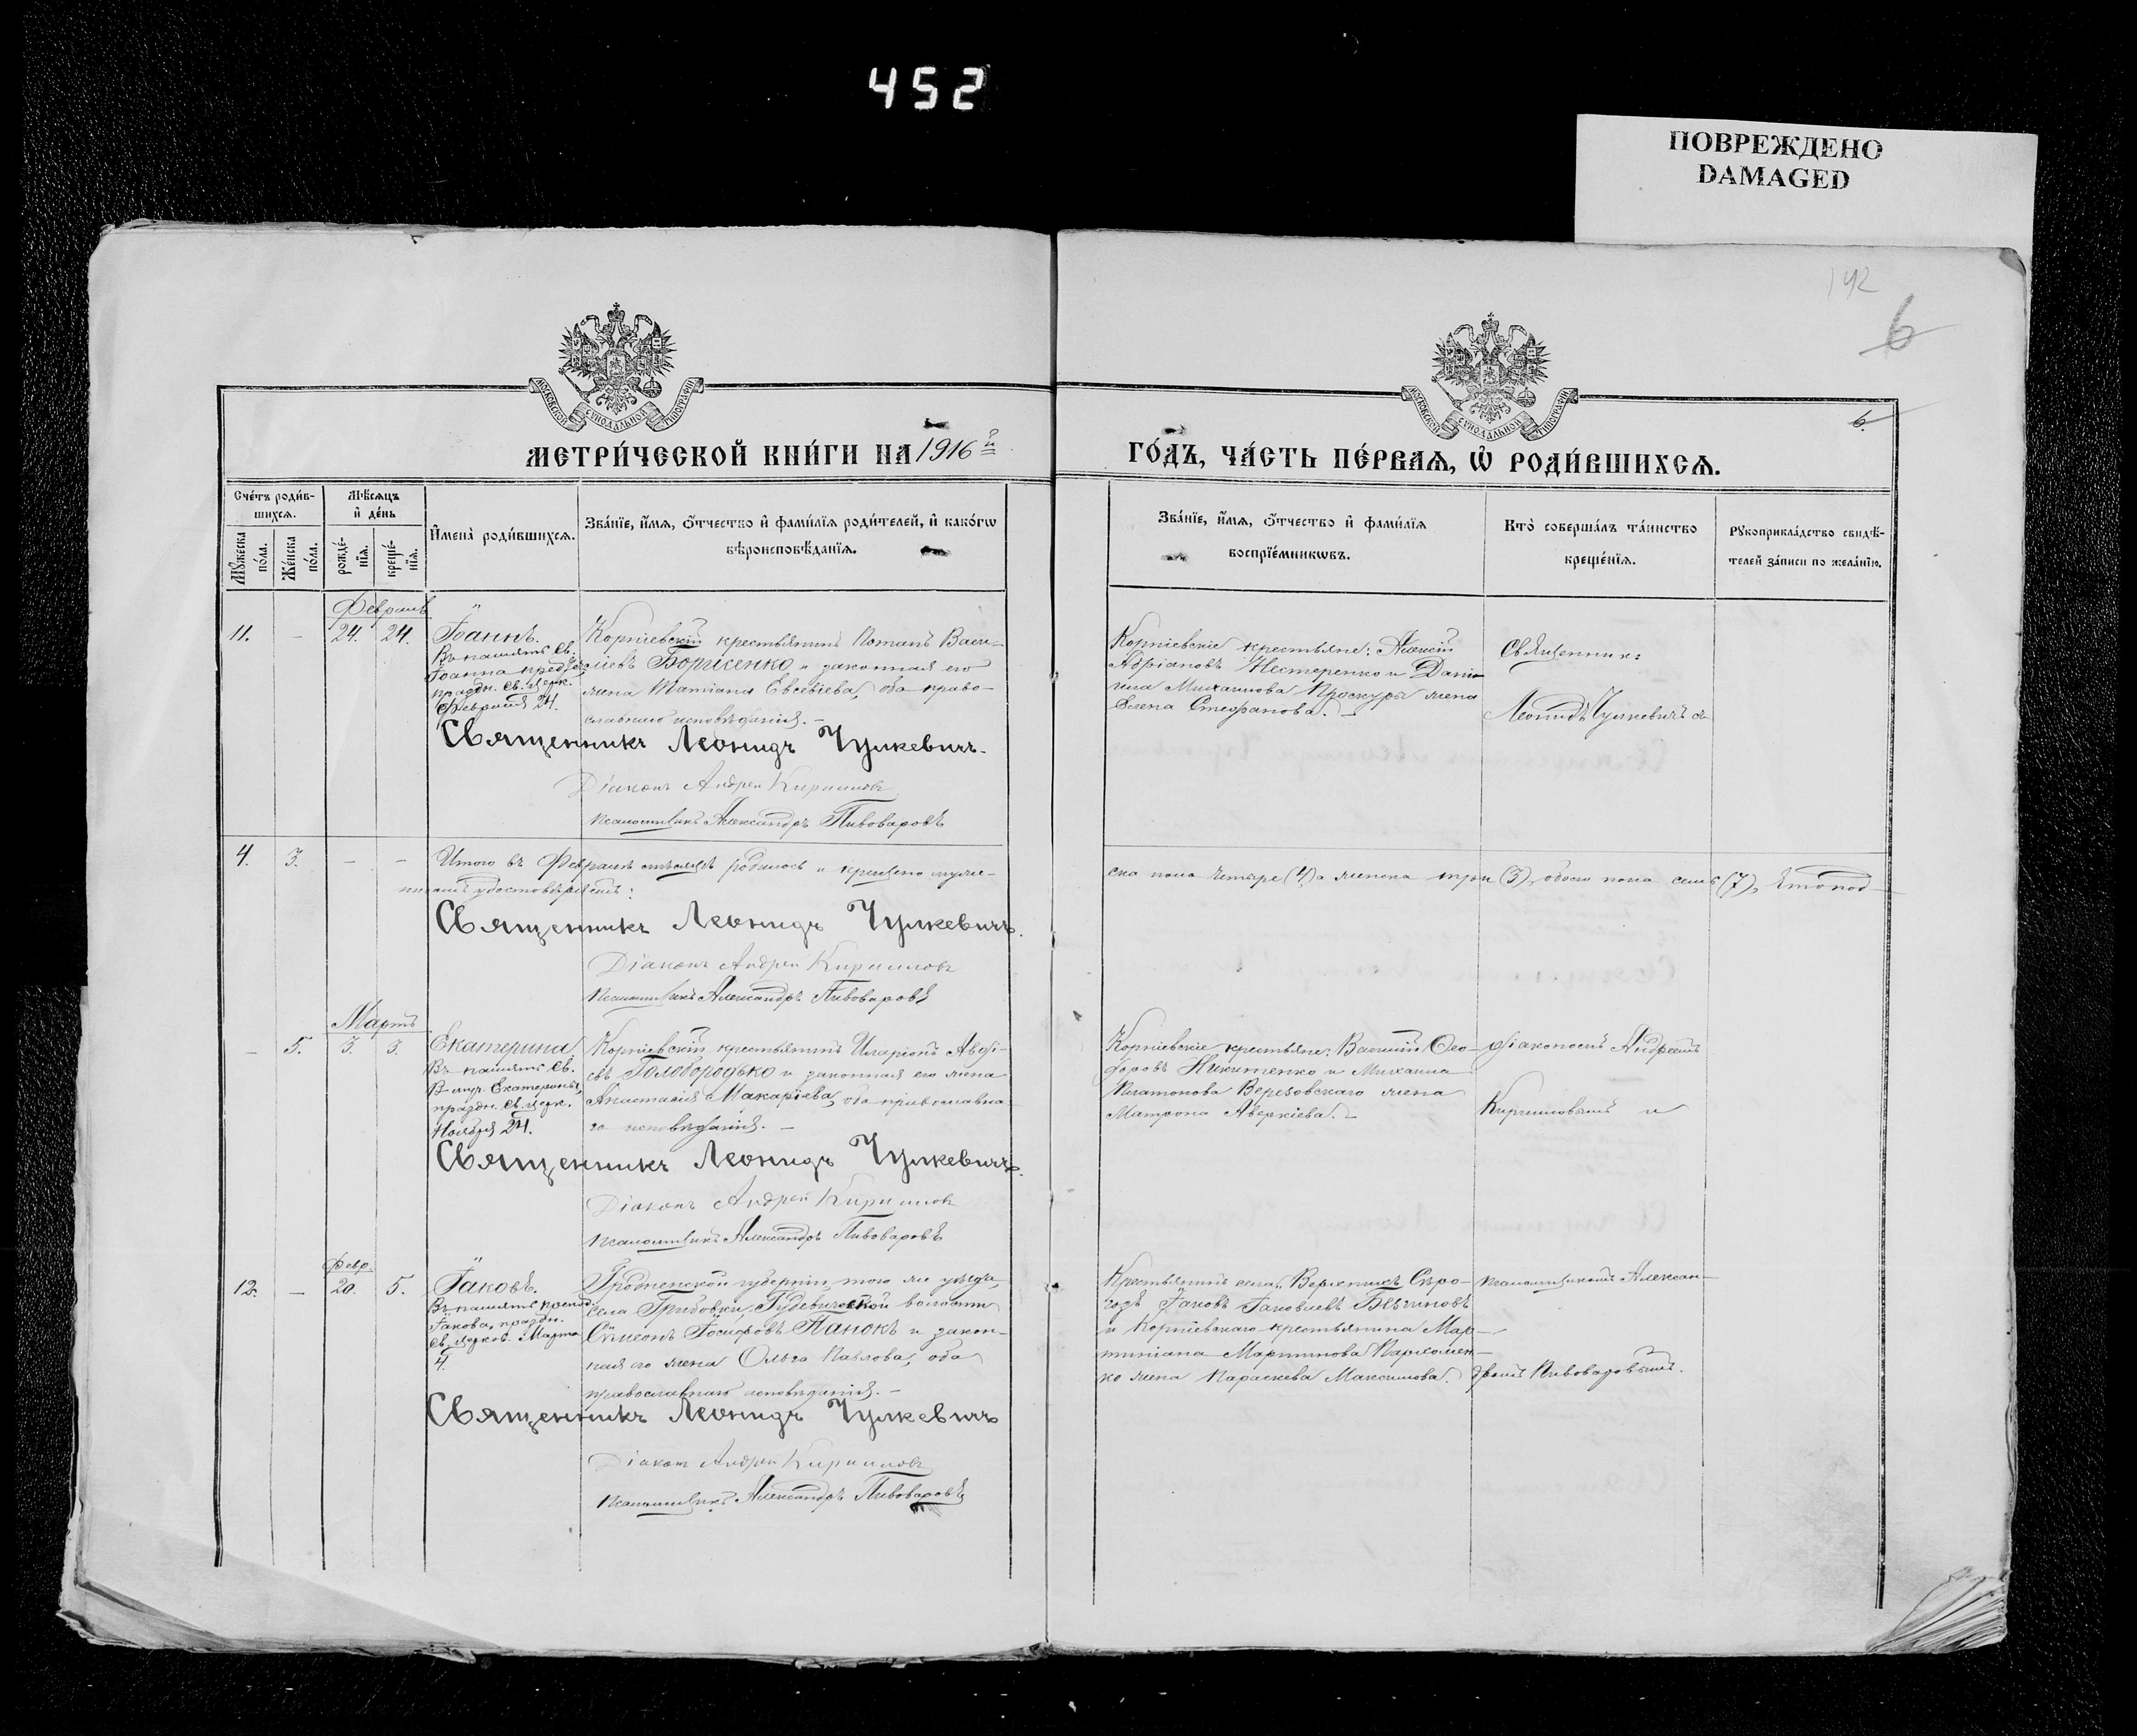 452
ПОВРЕЖДЕНО
DAMAGED
192
6
6.
МОСКОВСКОЙ СѴНОДАЛЬНОЙ ТИПОГРАФІИ
МОСКОВСКОЙ СѴНОДАЛЬНОЙ ТИПОГРАФІИ
МЕТРИ́ЧЕСКОЙ КНИ́ГИ НА 1916й
ГО́ДЪ, ЧА́СТЬ ПЕ́РВАЯ, Ѡ҆ РОДИ́ВШИХСЯ.
Сче́тъ роди́в-
шихся.
Мѣ́сяцъ
и҆ де́нь
Му́жеска
по́ла.
Же́нска
по́ла.
рожде́-
нїя.
креще́-
нїя.
И҆мена̀ роди́вшихся.
Зва́нїе, и҆́мя, ѻ҆́тчество и҆ фами́лїя роди́телей, и҆ како́гѡ
вѣроисповѣ́данїя.
Зва́нїе, и҆́мя, ѻ҆́тчество и҆ фами́лїя
воспрїе́мникѡвъ.
Кто̀ соверша́лъ та́инство
креще́нїя.
Рꙋкоприкла́дство свидѣ́-
телей за́писи по жела́нїю.
Февраль
11. – 24. 24.
Іоаннъ.
Въ память св.
Іоанна предтечи,
праздн. св. церк.
Февраля 24.
Корніевскій крестьянинъ Потапъ Васи-
ліевъ Борисенко и законная его
жена Татіана Евсевіева, оба право-
славнаго исповѣданія. –
Священникъ Леонидъ Чулкевичъ.
Діаконъ Андрей Кирилловъ
Псаломщикъ Александръ Пивоваровъ
Корніевскіе крестьяне: Алексій
Адріановъ Нестеренко и Дани-
ила Михаилова Проскуры жена
Елена Стефанова. –
Священникъ
Леонидъ Чулкевичъ съ
4. 3. – –
Итого въ Февралѣ мѣсяцѣ родилось и крещено муже-
ска пола четыре (4) а женска три (3), обоего пола семь (7), что под-
писомъ удостовѣряемъ:
Священникъ Леонидъ Чулкевичъ.
Діаконъ Андрей Кирилловъ
Псаломщикъ Александръ Пивоваровъ
Мартъ
– 5. 3. 3.
Екатерина.
Въ память св.
В-муч. Екатерины,
праздн. св. церк.
Ноября 24.
Корніевскій крестьянинъ Иларіонъ Авді-
евъ Голобородько и законная его жена
Анастасія Макаріева, оба православна-
го исповѣданія. –
Священникъ Леонидъ Чулкевичъ.
Діаконъ Андрей Кирилловъ
Псаломщикъ Александръ Пивоваровъ
Корніевскіе крестьяне: Василій Ѳео-
доровъ Никитенко и Михаила
Платонова Верезовскаго жена
Матрона Аверкіева. –
діакономъ Андреемъ
Кирилловымъ и
Февр.
12. – 20. 5.
Іаковъ.
Въ память препод.
Іакова, праздн.
св. церков. Марта
4.
Гродненской губерніи, того же уѣзда,
села Грибовки, Гудевичской волости
Симеонъ Іосифовъ Панокъ и закон-
ная его жена Ольга Павлова, оба
православнаго исповѣданія. –
Священникъ Леонидъ Чулкевичъ
Діаконъ Андрей Кирилловъ
Псаломщикъ Александръ Пивоваровъ
Крестьянинъ села
Іаковъ Іаковлевъ
и Корніевскаго крестьянина Мар-
тиніана Мартинова Пархомен-
ко жена Параскева Максимова.
псаломщикомъ Алексан-
дромъ Пивоваровымъ.